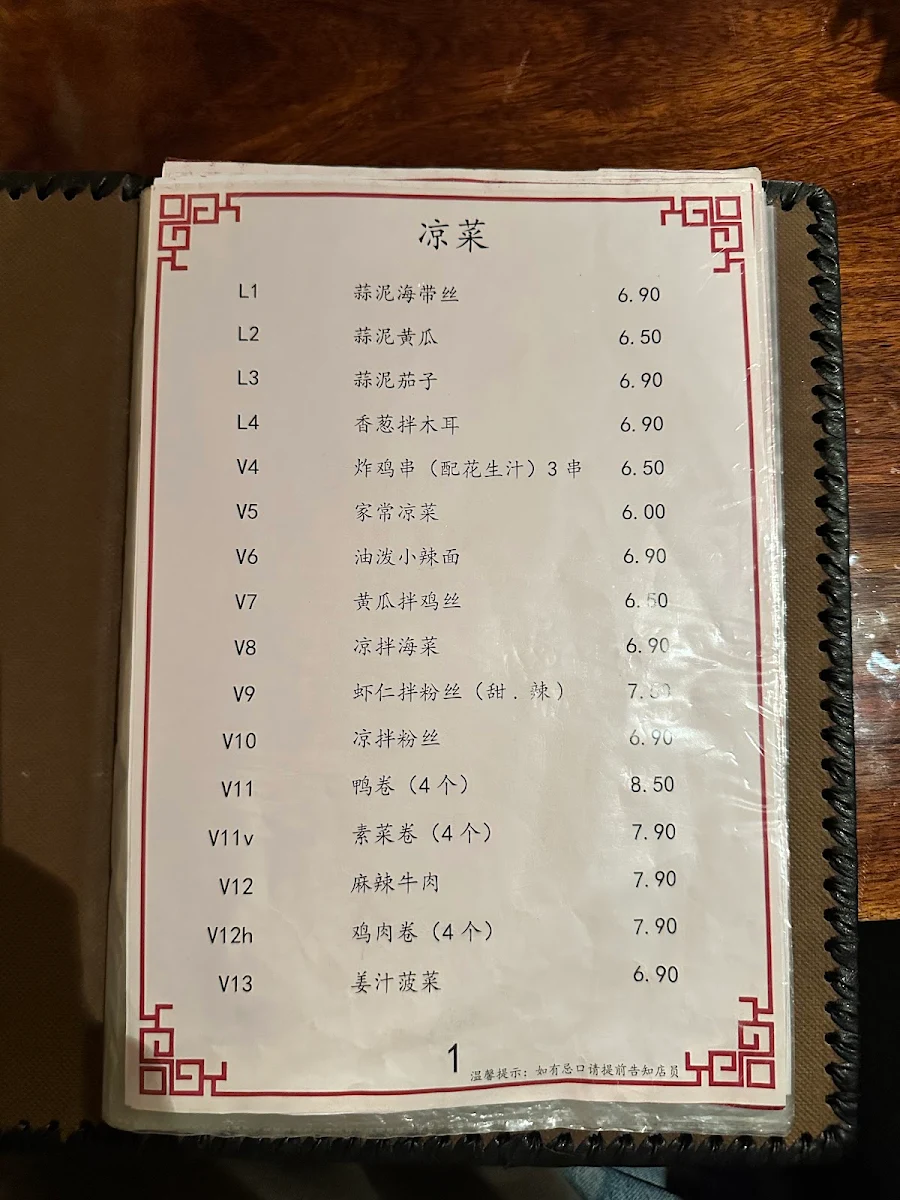 凉菜
L1 蒜泥海带丝 6.90
L2 蒜泥黄瓜 6.50
L3 蒜泥茄子 6.90
L4 香葱拌木耳 6.90
V4 炸鸡串（配花生汁）3串 6.50
V5 家常凉菜 6.00
V6 油泼小辣面 6.90
V7 黄瓜拌鸡丝 6.50
V8 凉拌海菜 6.90
V9 虾仁拌粉丝（甜．辣）
V10 凉拌粉丝 6.90
V11 鸭卷（4个） 8.50
V11v 素菜卷（4个） 7.90
V12 麻辣牛肉 7.90
V12h 鸡肉卷（4个） 7.90
V13 姜汁菠菜 6.90
1
温馨提示：如有忌口请提前告知店员